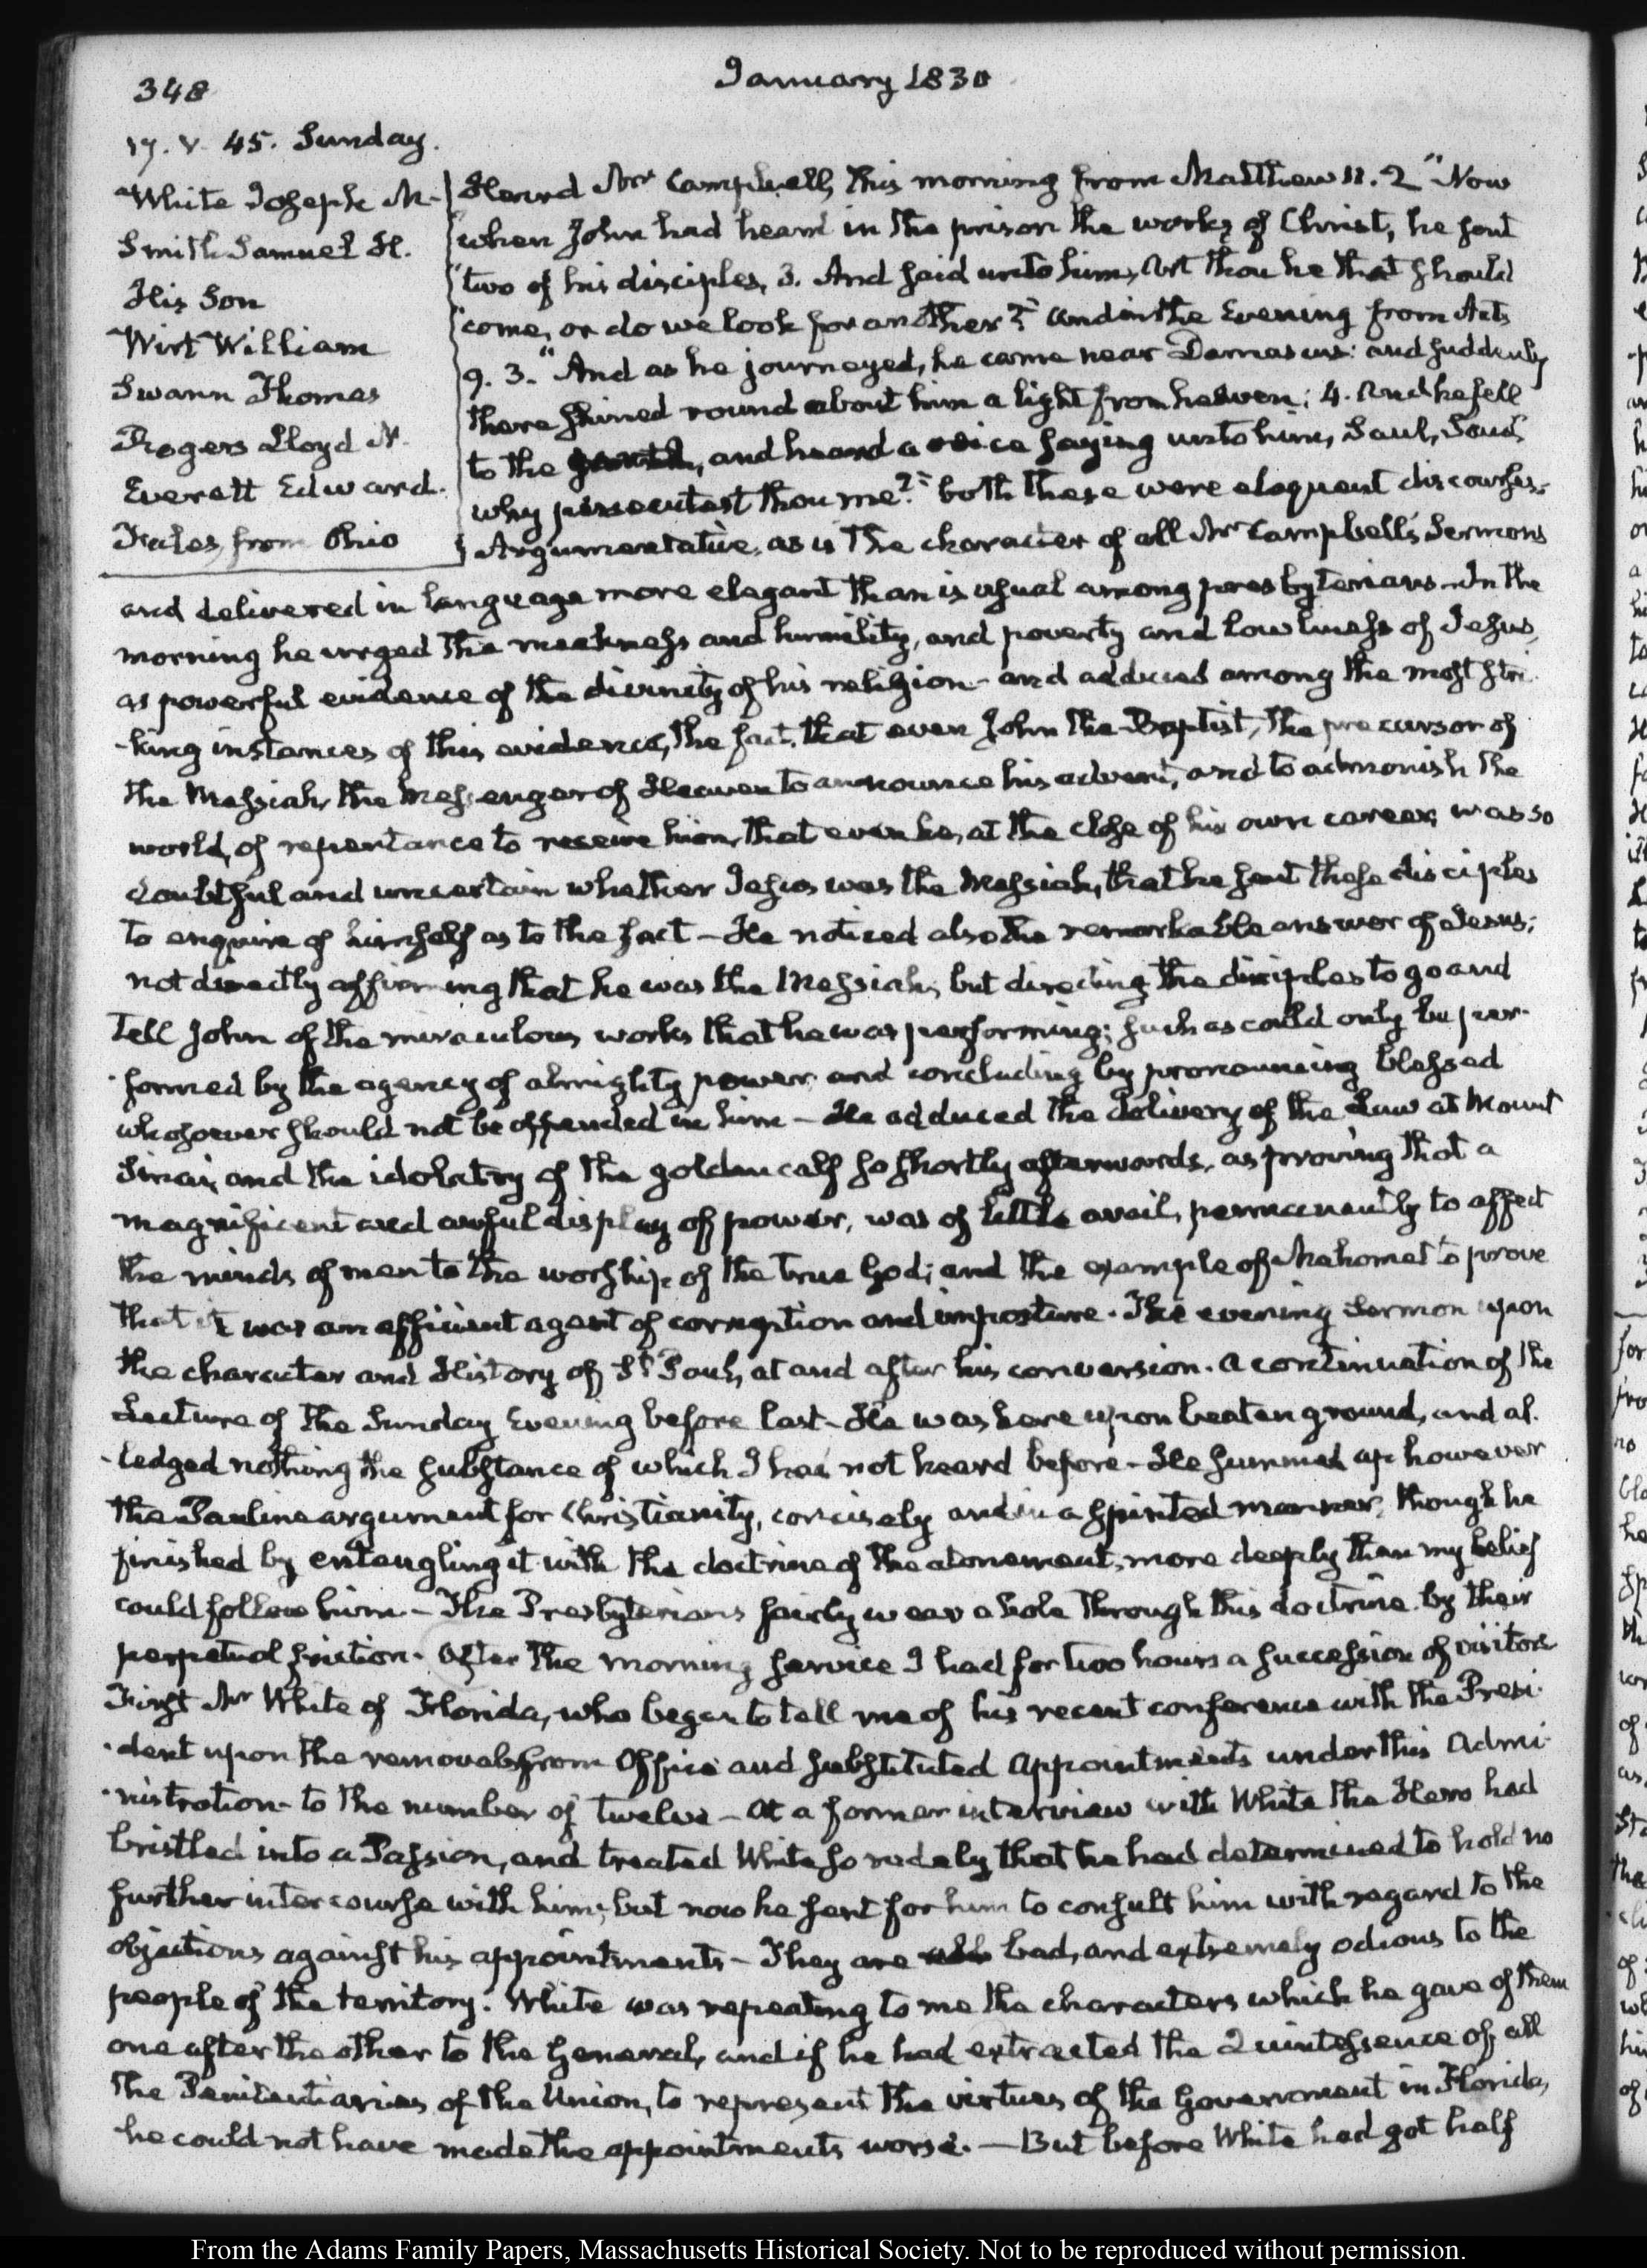 348
January 1830
17. V. 45. Sunday.
White Joseph M.
Smith Samuel H.
His Son
Wirt William
Swann Thomas
Rogers Lloyd N.
Everett Edward.
from Ohio
Heard Mr Campbell, this morning from Matthew 11. 2 "Now
"when John had heard in the prison the works of Christ, he sent
"two of his disciples, 3. And said unto him, Art thou he that should
"come, or do we look for another?" and in the Evening from Acts
9. 3. "And as he journeyed, he came near Damascus: and suddenly
there shined round about him a light from heaven: 4. And he fell
to the earth, and heard a voice saying unto him, Saul, Saul,
why persecutest thou me?" both these were eloquent discourses.
Argumentative, as is the character of all Mr Campbell's Sermons
and delivered in language more elegant than is usual among presbyterians. In the
morning he urged the meekness and humility, and poverty and lowliness of Jesus,
as powerful evidence of the divinity of his religion- and adduced among the most stri-
-king instances of this evidence, the fact, that even John the Baptist, the precursor of
the Messiah, the Messenger of Heaven to announce his advent, and to admonish the
world, of repentance to receive him, that even he, at the close of his own career, was so
doubtful and uncertain whether Jesus was the Messiah, that he sent these disciples
to enquire of himself as to the fact - He noticed also the remarkable answer of Jesus;
not directly affirming that he was the Messiah, but directing the disciples to go and
tell John of the miraculous works that he was performing; such as could only be per-
-formed by the agency of almighty power, and concluding by pronouncing blessed
whosoever should not be offended in him - He adduced the delivery of the Law at Mount
Sinai, and the idolatry of the golden calf so shortly afterwards, as proving that a
magnificent and awful display of power, was of little avail, permanently to affect
the minds of men to the worship of the true God; and the example of Mahomet to prove
that it was an efficient agent of corruption and imposture. The evening Sermon upon
the character and History of St Paul, at and after his conversion. a continuation of the
Lecture of the Sunday Evening before last - He was here upon beaten ground, and al-
-ledged nothing the substance of which I had not heard before - He summed up however
the Pauline argument for Christianity, concisely and in a spirited manner, though he
finished by entangling it with the doctrine of the atonement, more deeply than my belief
could follow him - The Presbyterians fairly wear a hole through this doctrine by their
perpetual friction. After the morning service I had for two hours a succession of visitors
First Mr White of Florida, who began to tell me of his recent conference with the Presi-
-dent upon the removals from Office and substituted appointments under this Admi-
-nistration- to the number of twelve - At a former interview with White the Hero had
bristled into a Passion, and treated White so rudely that he had determined to hold no
further intercourse with him; but now he sent for him to consult him with regard to the
objections against his appointments - They are all bad, and extremely odious to the
people of the territory. White was repeating to me the characters which he gave of them
one after the other to the General, and if he had extracted the Quintessence of all
the Penitentiaries of the Union, to represent the virtues of the Government in Florida,
he could not have made the appointments worse. - But before White had got half
From the Adams Family Papers, Massachusetts Historical Society. Not to be reproduced without permission.